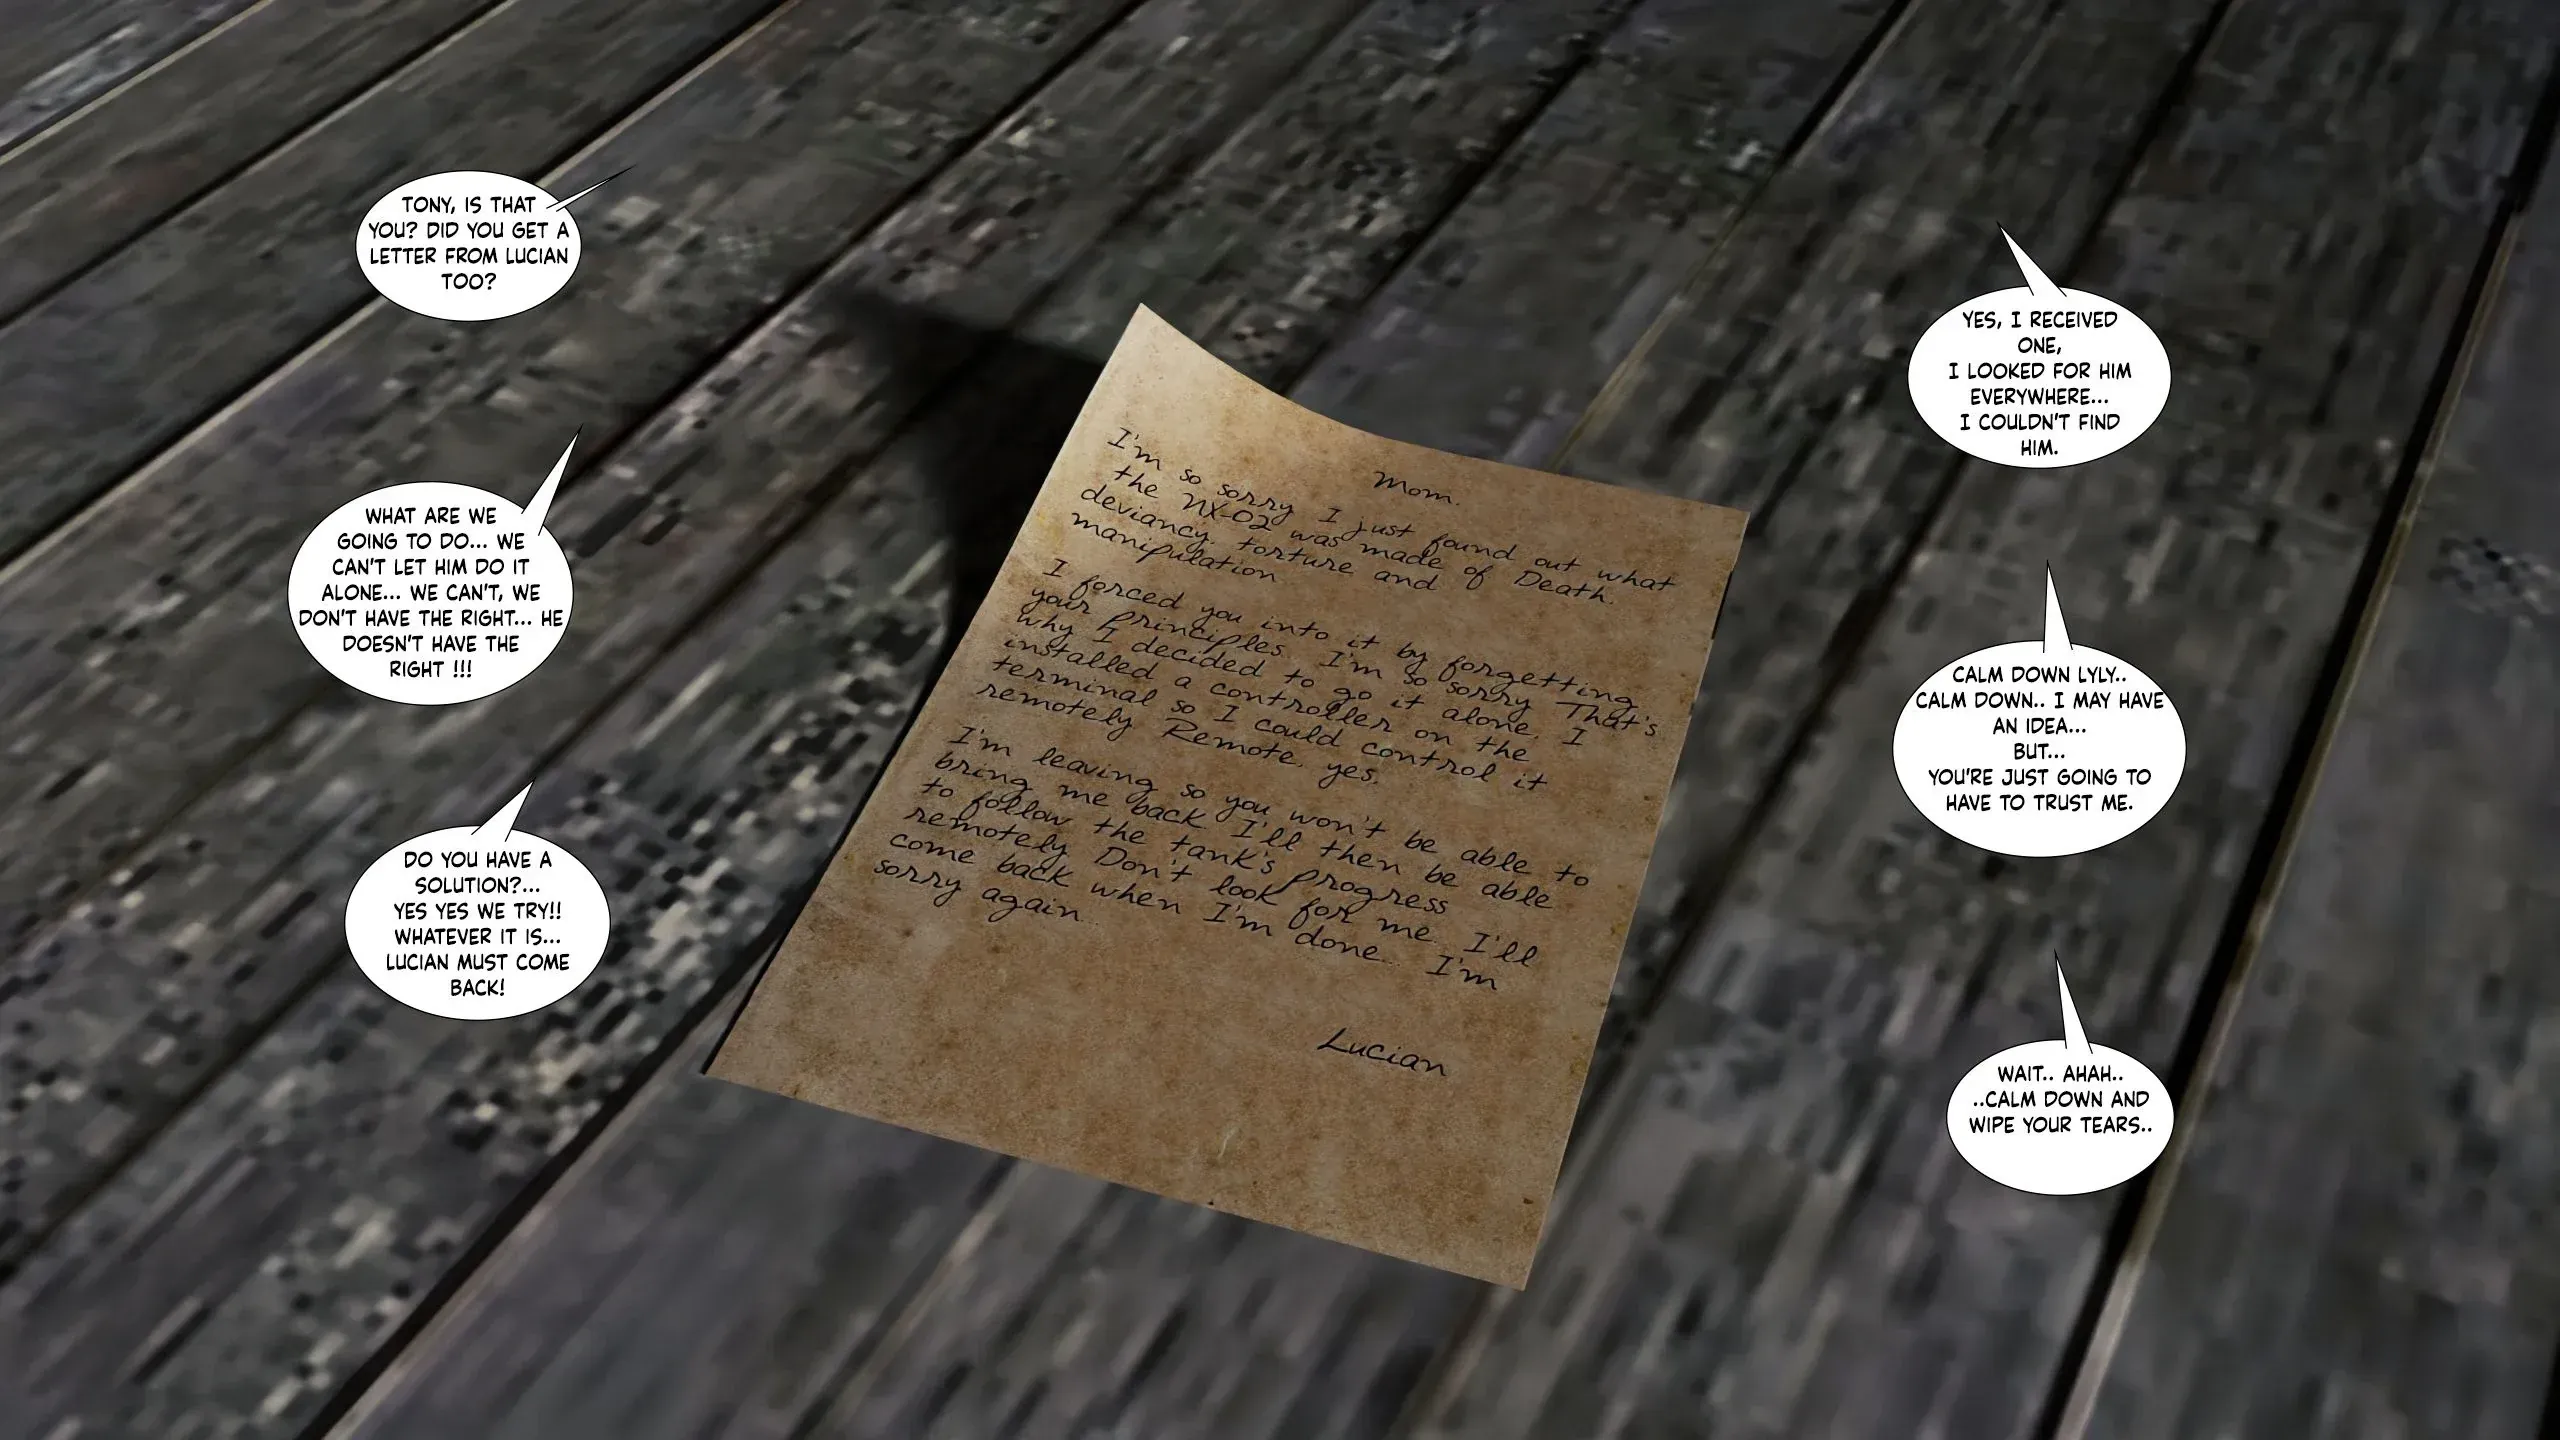 TONY, IS THAT
YOU? DID YOU GET A
LETTER FROM LUCIAN
TOO?
YES, I RECEIVED
ONE,
I LOOKED FOR HIM
EVERYWHERE...
I COULDN'T FIND
HIM.
WHAT ARE WE
GOING TO DO... WE
CAN'T LET HIM DO IT
ALONE... WE CAN'T, WE
DON'T HAVE THE RIGHT... HE
DOESN'T HAVE THE
RIGHT !!!
CALM DOWN LYLY..
CALM DOWN.. I MAY HAVE
AN IDEA...
BUT...
YOU'RE JUST GOING TO
HAVE TO TRUST ME.
DO YOU HAVE A
SOLUTION?...
YES YES WE TRY!!
WHATEVER IT IS...
LUCIAN MUST COME
BACK!
WAIT.. AHAH..
..CALM DOWN AND
WIPE YOUR TEARS..
Mom.
I'm so sorry I just found out what
the NX-02 was made of Death.
deviancy, torture and
manipulation
I forced you into it by forgetting
your principles. I'm so sorry That's
why I decided to go it alone. I
installed a controller on the
terminal so I could control it
remotely. Remote, yes.
I'm leaving so you won't be able to
bring me back I'll then be able
to follow the tank's progress
remotely Don't look for me. I'll
come back when I'm done... I'm
sorry again...
Lucian